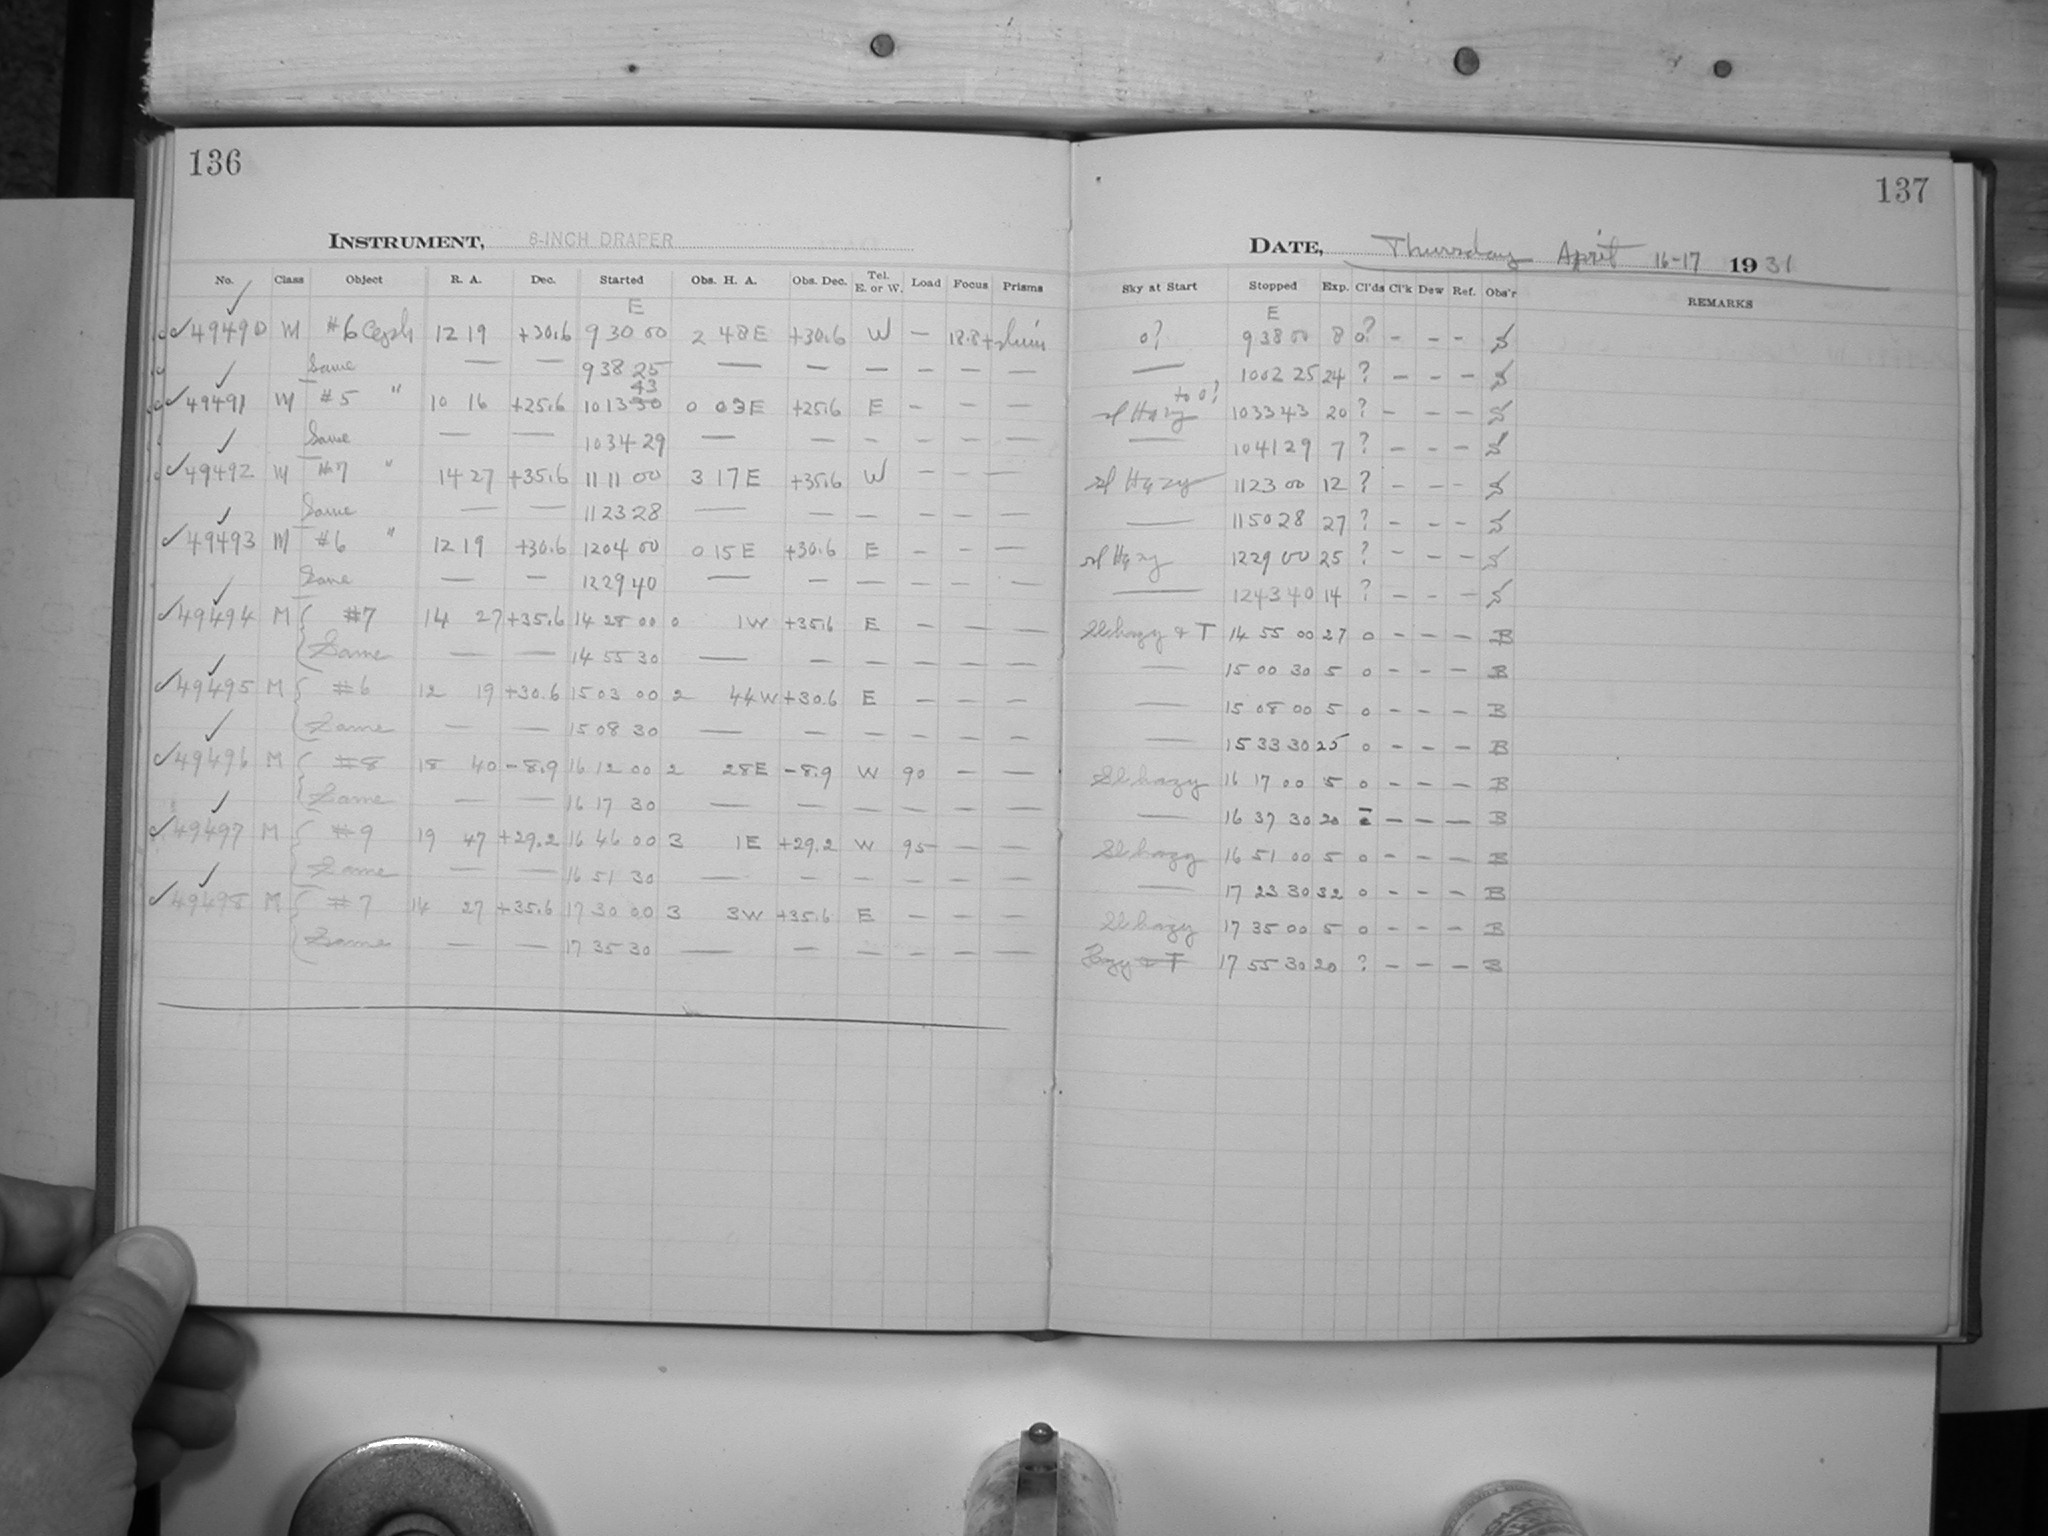 136
INSTRUMENT, 8-INCH DRAPER
No. Class Object R. A. Dec. Started Obs. H. A. Obs. Dec. Tel. E. or W. Load Focus Prisms
E
✓49490 M #6 Ceph 12 19 +30.6 9 30 00 2 48E +30.6 W —
Same — — 9 38 25 — — — — — —
✓49491 M #5 " 10 16 +25.6 10 13 30 43 0 03E +25.6 E - — —
Same — — 10 34 29 — — - — — —
✓49492 M #7 " 14 27 +35.6 11 11 00 3 17E +35.6 W — — —
Same — — 11 23 28 — — — — — —
✓49493 M #6 " 12 19 +30.6 12 04 00 0 15E +30.6 E — — —
Same — — 12 29 40 — — — — — —
✓49494 M #7 14 27 +35.6 14 28 00 0 1W +35.6 E — — —
Same — — 14 55 30 — — — — — —
✓49495 M #6 12 19 +30.6 15 03 00 2 44W +30.6 E — — —
Same — — 15 08 30 — — — — — —
✓49496 M #8 18 40 -8.9 16 12 00 2 28E -8.9 W 90 — —
Same — — 16 17 30 — — — — — —
✓49497 M #9 19 47 +29.2 16 46 00 3 1E +29.2 W 95 — —
Same — — 16 51 30 — — — — — —
✓49498 M #7 14 27 +35.6 17 30 00 3 3W +35.6 E — — —
Same — — 17 35 30 — — — — — —
137
DATE, Thursday April 16-17 1931
Sky at Start Stopped Exp. Cl'ds Cl'k Dew Ref. Obs'r REMARKS
E
0? 9 38 00 8 0? - - - S
— 10 02 25 24 ? - - - S
sl Hazy to 0? 10 33 43 20 ? - - - S
— 10 41 29 7 ? - - - S
sl Hazy 11 23 00 12 ? - - - S
— 11 50 28 27 ? - - - S
sl Hazy 12 29 00 25 ? - - - S
— 12 43 40 14 ? - - - S
Sl hazy & T 14 55 00 27 0 - - - B
— 15 00 30 5 0 - - - B
— 15 08 00 5 0 - - - B
— 15 33 30 25 0 - - - B
Sl hazy 16 17 00 5 0 - - - B
— 16 37 30 20 - - - B
Sl hazy 16 51 00 5 0 - - - B
— 17 23 30 32 0 - - - B
Sl hazy 17 35 00 5 0 - - - B
Hazy & T 17 55 30 20 ? - - - B